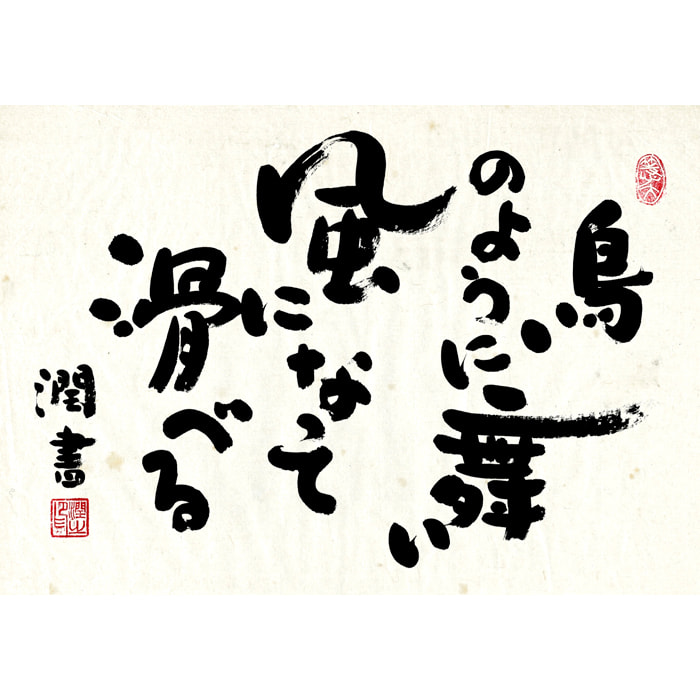 鳥
のように舞い
風になって
滑べる
潤書